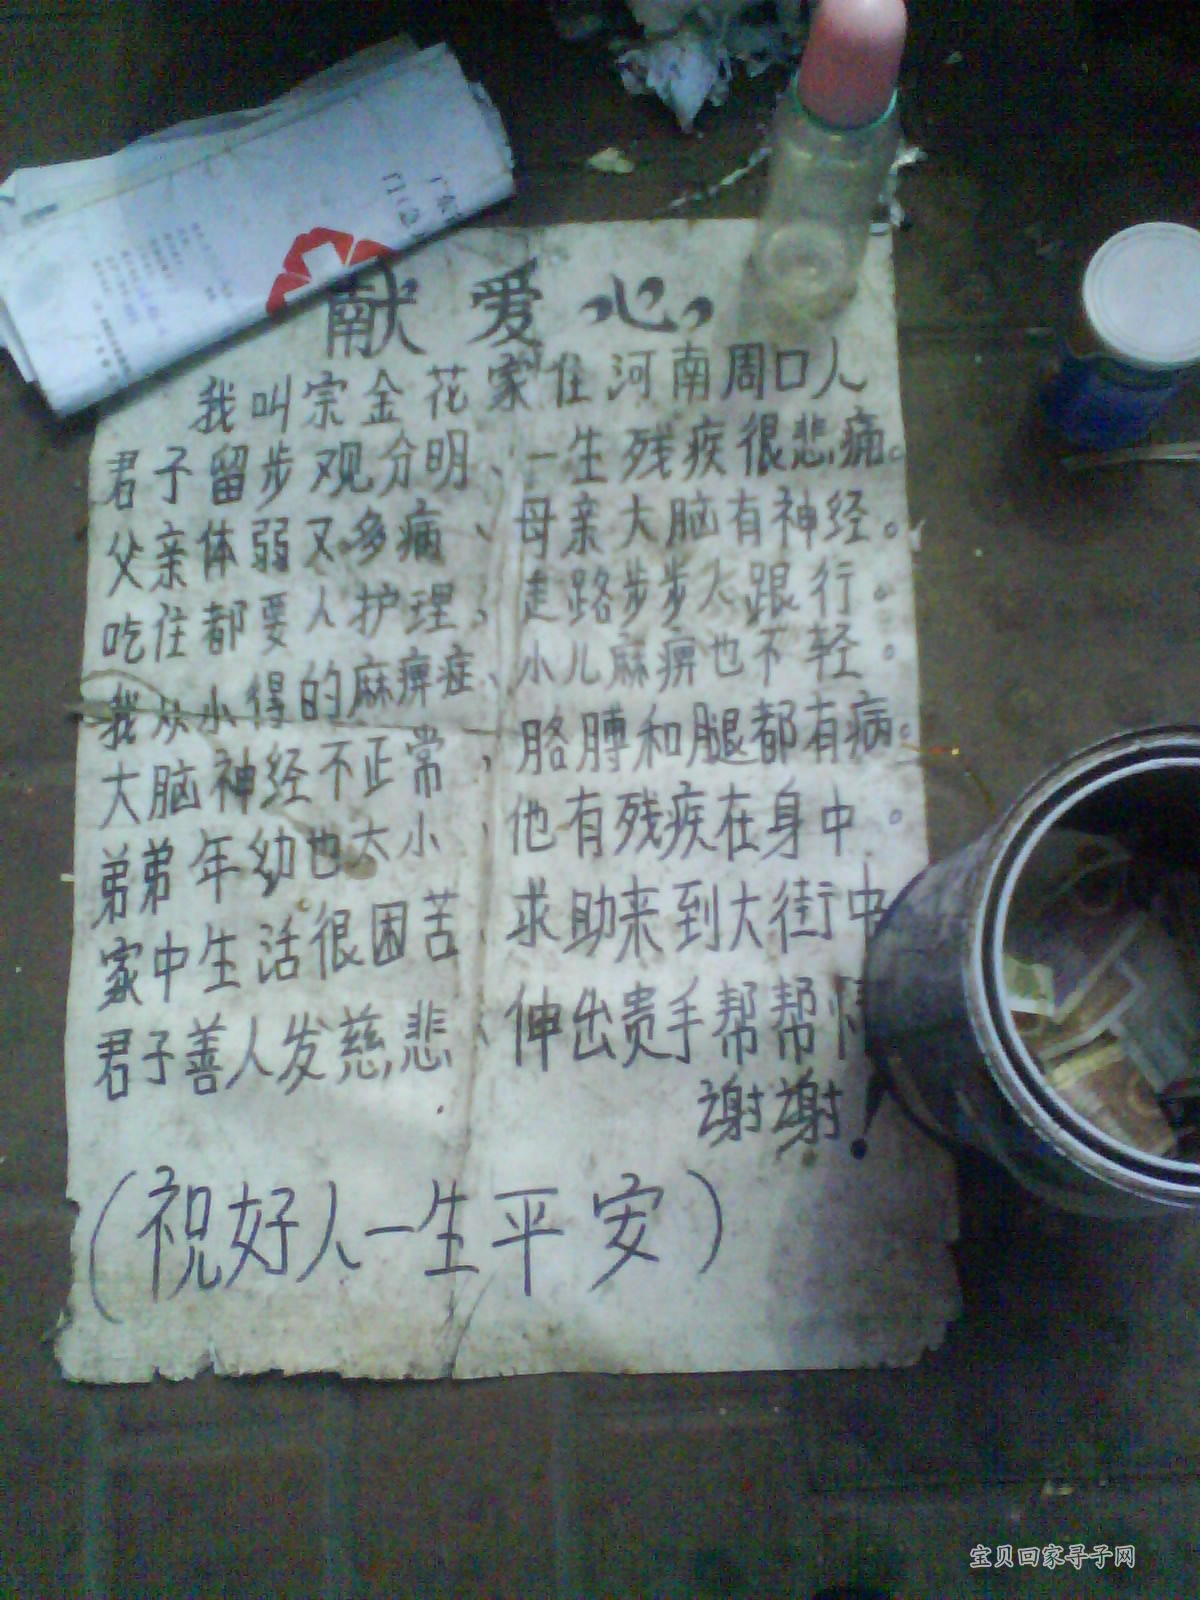 献爱心
我叫宗金花家住河南周口人
君子留步观分明、一生残疾很悲痛。
父亲体弱又多病、母亲大脑有神经。
吃住都要人护理、走路步步人跟行。
我从小得的麻痹症、小儿麻痹也不轻。
大脑神经不正常、胳膊和腿都有病。
弟弟年幼也大小、他有残疾在身中。
家中生活很困苦、求助来到大街中
君子善人发慈悲、伸出贵手帮帮
谢谢!
(祝好人一生平安)
宝贝回家寻子网